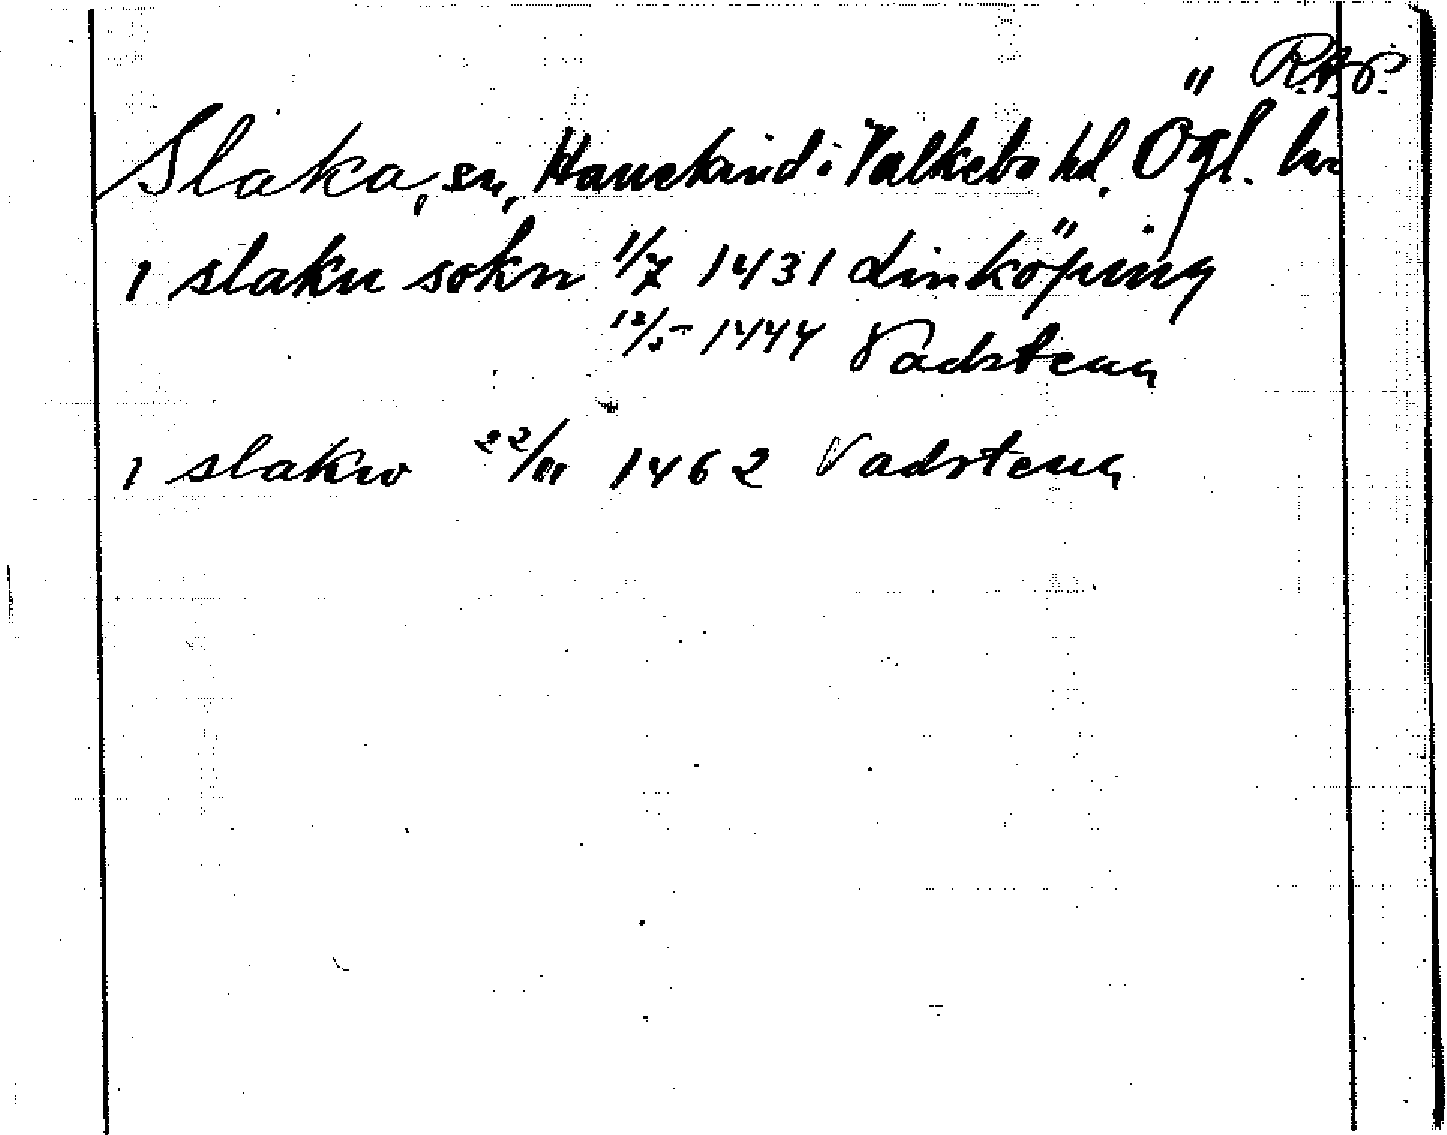 RAP
Slaka, sn, Hanekind i Valkebo hd. Ögl. län
i slaku sokn 1/7 1431 Linköping
12/5 1444 Vadstena
i slakw 22/11 1462 Vadstena